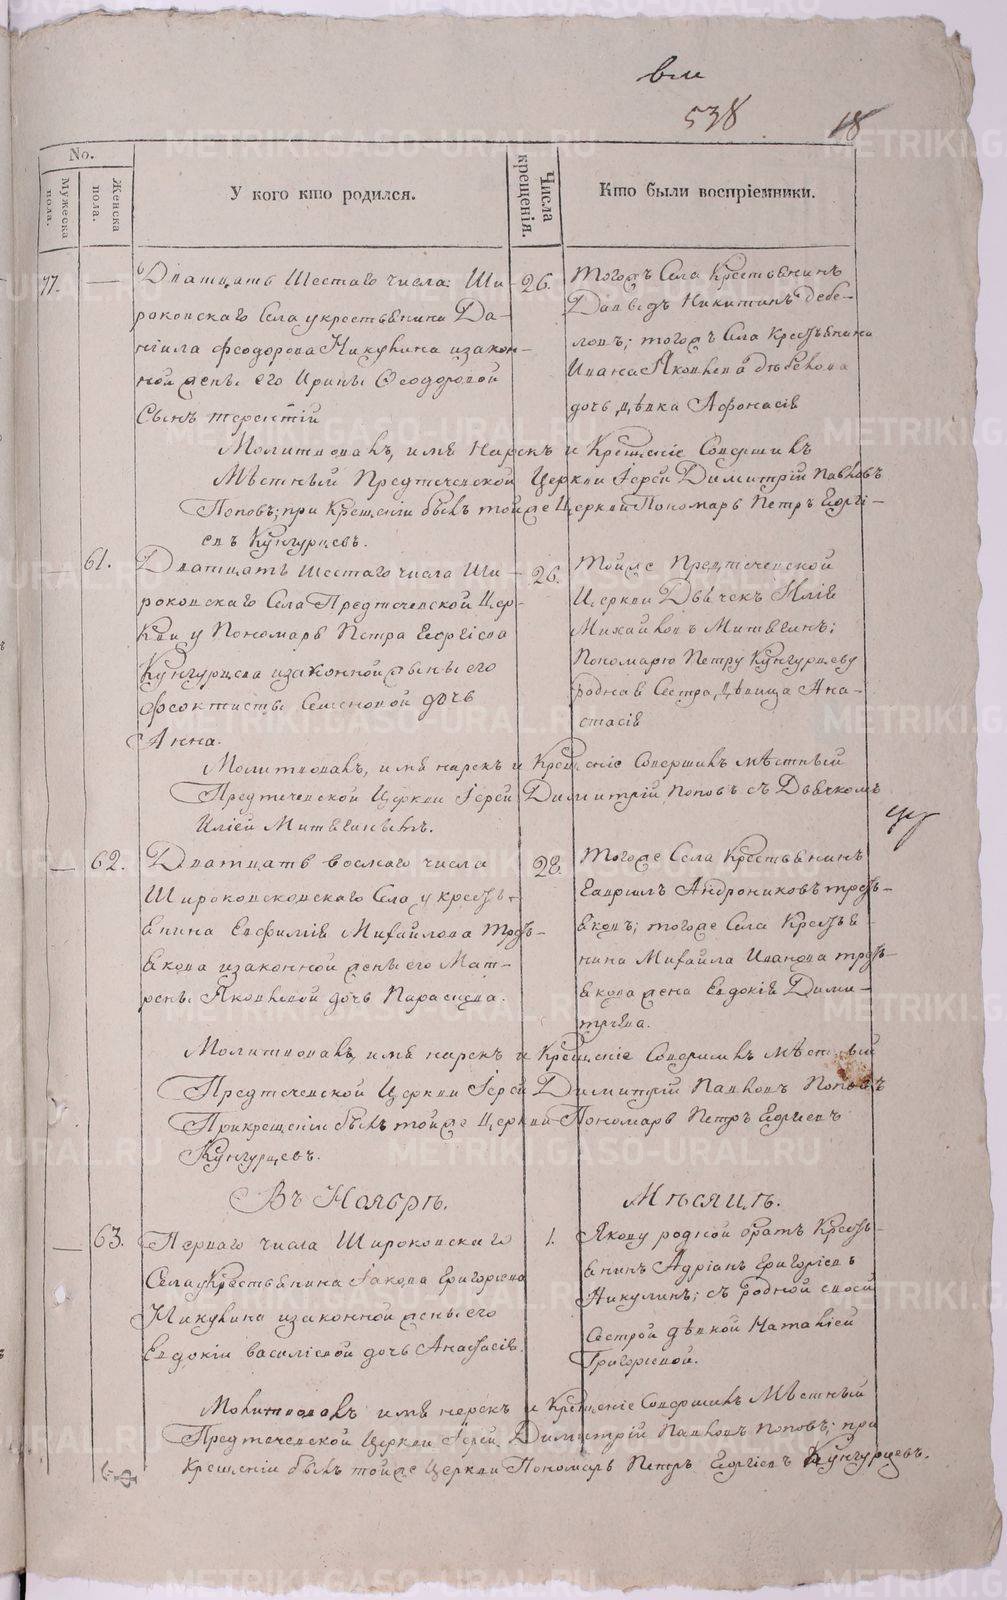 вм
538
18
No.
Мужеска пола.
Женска пола.
У кого кто родился.
Числа крещенія.
Кто были воспріемники.
77. — Дватцать Шестаго числа: Ши-
роковскаго Села укрестьянина Да-
ніила Феодорова Никулина изакон-
ной жены его Ирины Феодоровой
Сынъ терентій
26.
Тогожъ Села Крестьянинъ
Давыдъ Никитинъ Дебе-
ловъ; тогожъ Села Крестьянина
Ивана Яковлева Дебелова
дочь дѣвка Афонасія
Молитвовалъ, имя нарекъ и Крещеніе Совершилъ
Мѣстный Предтечевской Церкви Іерей Димитрій Павловъ
Поповъ; при Крещеніи былъ тойже Церкви Пономарь Петръ Георгі-
евъ Кунгурцевъ.
— 61. Дватцать Шестаго числа Ши-
роковскаго Села Предтечевской Цер-
кви у Пономаря Петра Георгіева
Кунгурцева изаконной жены его
Феоктисты Семеновой дочь
Анна.
26.
Тойже Предтечевской
Церкви Дьячекъ Илія
Михайловъ Митягинъ;
Пономарю Петру Кунгурцеву
родная Сестра, дѣвица Ана-
стасія
Молитвовалъ, имя нарекъ и Крещеніе Совершилъ мѣстный
Предтечевской Церкви Іерей Димитрій Поповъ съ Дьячкомъ
Иліей Митягинымъ.
— 62. Дватцать восмаго числа
Широковсковскаго Села у крестьт-
янина Евфимія Михайлова Треть-
якова изаконной жены его Мат-
рены Яковлевой дочь Парасцева.
28.
Тогоже Села Крестьянинъ
Гавриилъ Андрониковъ треть-
яковъ; тогоже Села Крестья-
нина Михаила Иванова треть-
якова жена Евдокія Дими-
тріева.
Молитвовалъ, имя нарекъ и Крещеніе Совершилъ мѣстный
Предтечевской Церкви Іерей Димитрій Павловъ Поповъ
Прикрещеніи былъ тойже Церкви Пономарь Петръ Георгіевъ
Кунгурцевъ.
Въ Ноябрѣ. Мѣсяцѣ.
— 63. Перваго числа Широковскаго
Села у Крестьянина Іакова Григоріева
Никулина изаконной жены его
Евдокіи василіевой дочь Анастасія.
1.
Якову родной братъ Кресть-
янинъ Адріанъ Григоріевъ
Никулинъ; съ родной своей
Сестрой дѣвкой Наталіей
Григоріевой.
Молитвовалъ имя нарекъ и Крещеніе Совершилъ Мѣстный
Предтечевской Церкви Іерей Димитрій Павловъ Поповъ; при
Крещеніи былъ тойже Церкви Пономарь Петръ Георгіевъ Кунгурцевъ.
METRIKI.GASO-URAL.RU